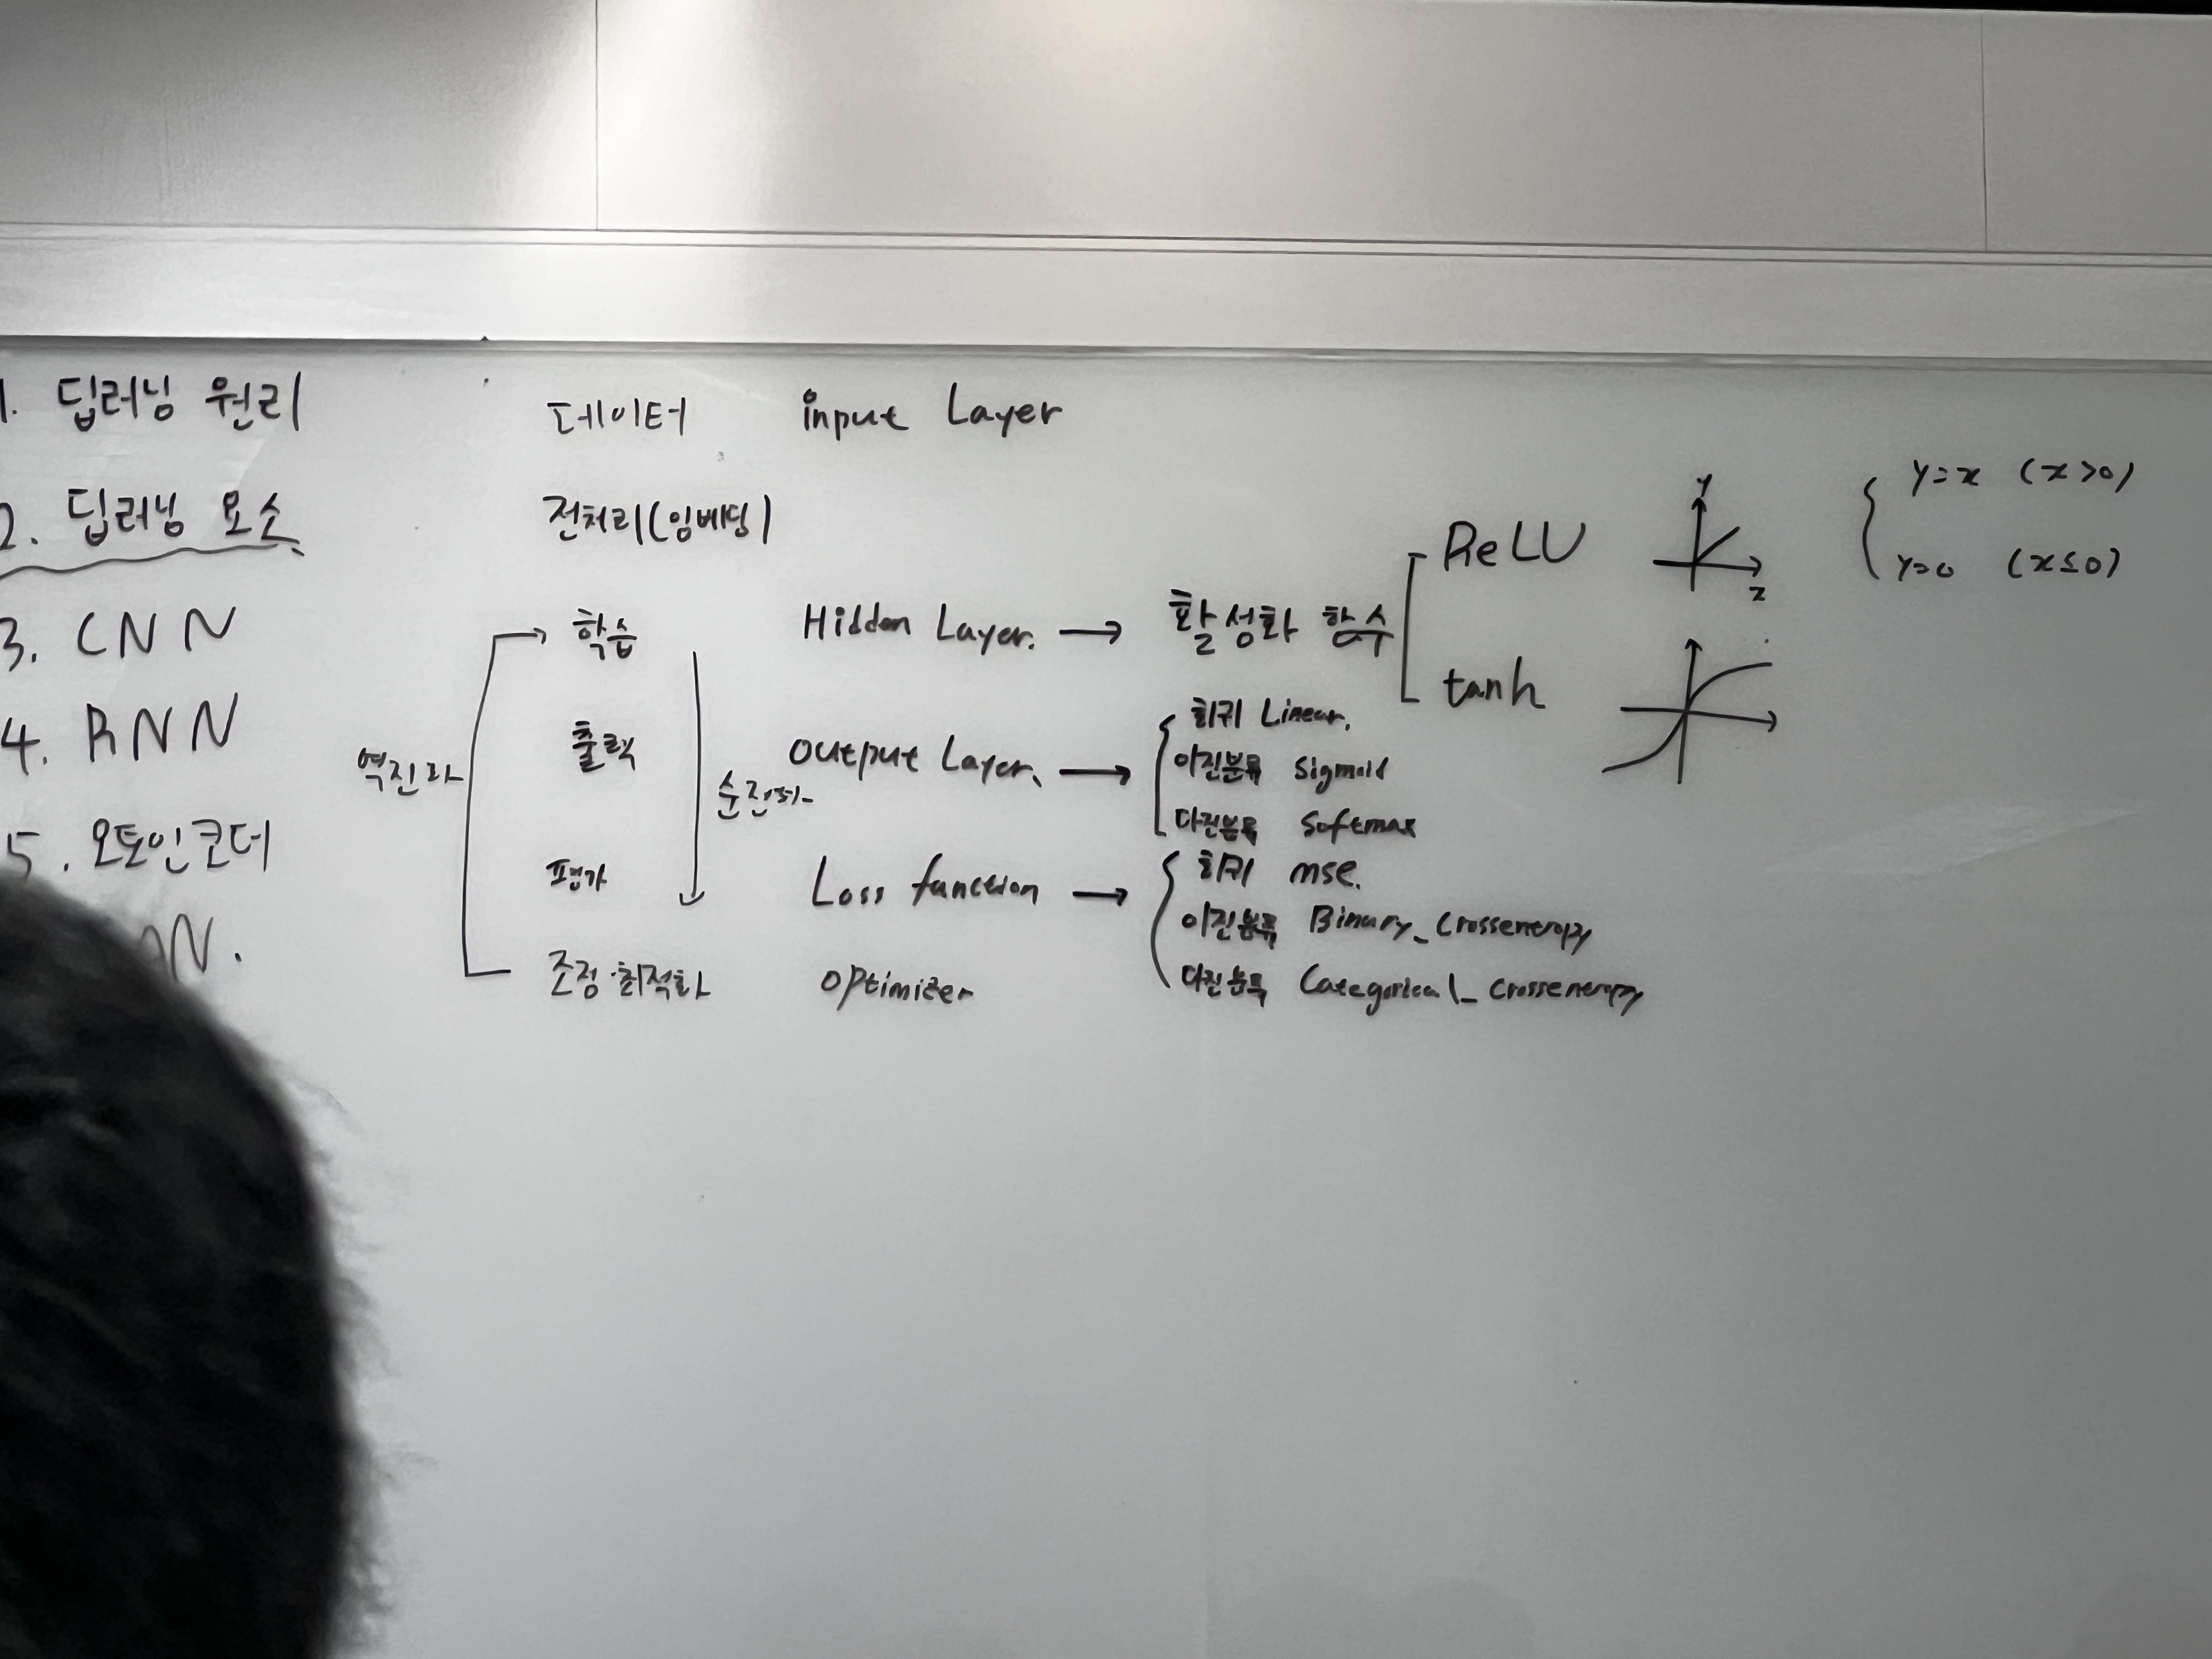 1. 딥러닝 원리
2. 딥러닝 요소
3. CNN
4. RNN
5. 오토인코더
N.
데이터 input Layer
전처리(임베딩)
학습 Hidden Layer. → 활성화 함수
ReLU
y
x
y=x (x>0)
y=0 (x≤0)
tanh
역전파
순전파
출력 output Layer. →
회귀 Linear.
이진분류 sigmoid
다진분류 softmax
평가 Loss function →
회귀 mse.
이진분류 Binary_crossentropy
다진분류 Categorical_crossentropy
조정·최적화 optimizer